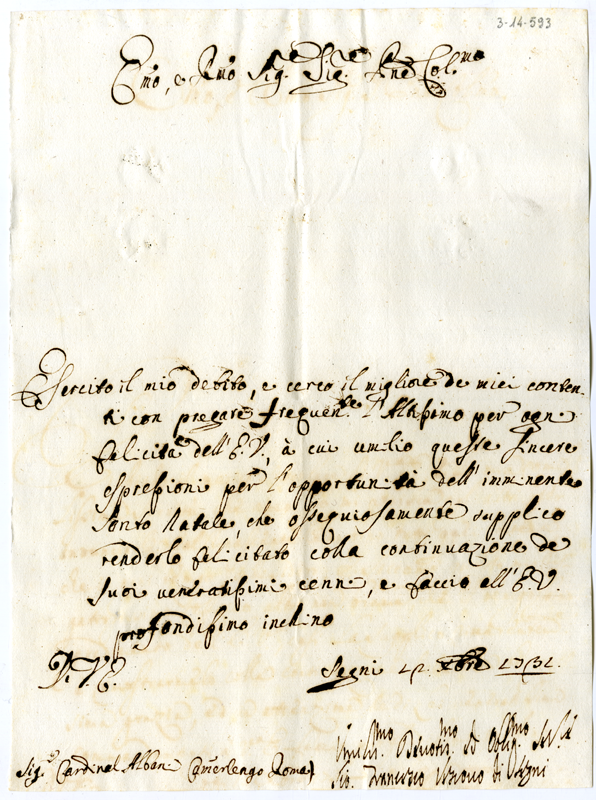 3-14-593
Emo, e Rmo Sig.re Sig.re Pne Col.mo
Esercito il mio debito, e cerco il migliore de miei conten-
ti con pregare frequen.te l'Altissimo per ogni
felicità dell'E.V., à cui umilio queste sincere
espressioni per l'opportunità dell'imminente
Santo Natale, che ossequiosamente supplico
renderlo felicitato colla continuazione de
suoi veneratissimi cenni, e faccio all'E.V.
profondissimo inchino
Di V.E.
Segni 12 Xbre 1732.
Umilis.mo Devotis.mo ed Obblig.mo
Sig.r Cardinal Albani Camerlengo Roma
Vescovo di Segni